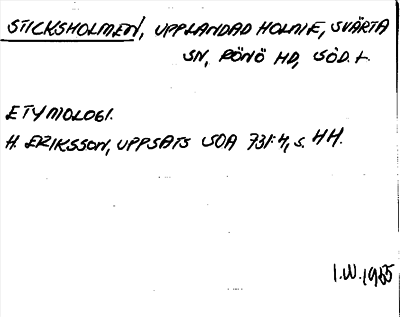 STICKSHOLMEN, UPPLANDAD HOLME, SVÄRTA
SN, RÖNÖ HD, SÖD. L.
ETYMOLOGI.
H. ERIKSSON, UPPSATS SOA 731:4, s. 44.
I.W. 1965